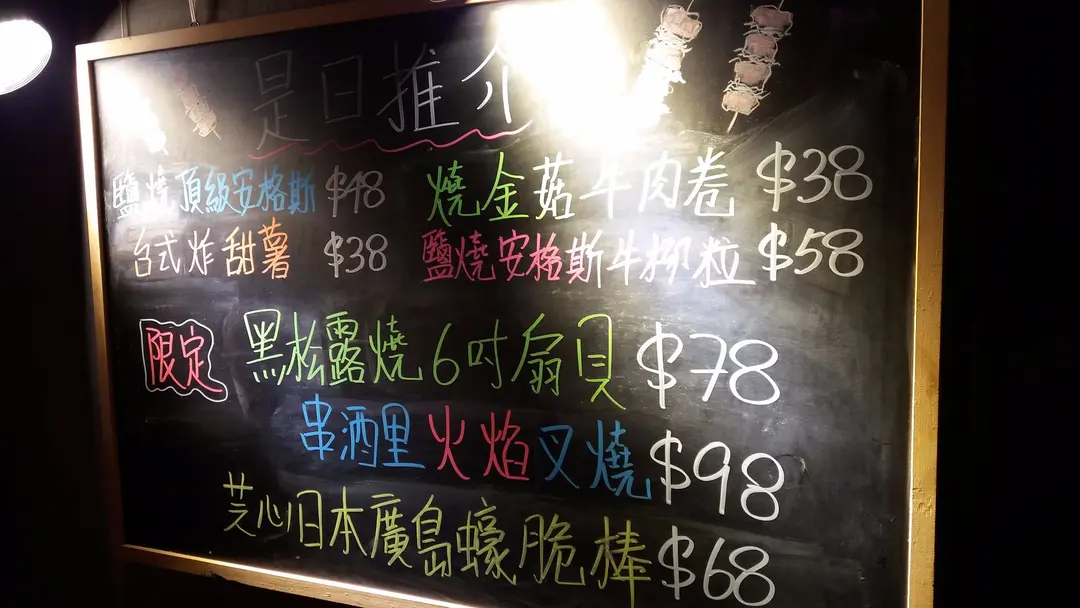 是日推介
鹽燒頂級安格斯 $48
燒金菇牛肉卷 $38
台式炸甜薯 $38
鹽燒安格斯牛柳粒 $58
限定
黑松露燒6吋扇貝 $78
串酒里火焰叉燒 $98
芝心日本廣島蠔脆棒 $68